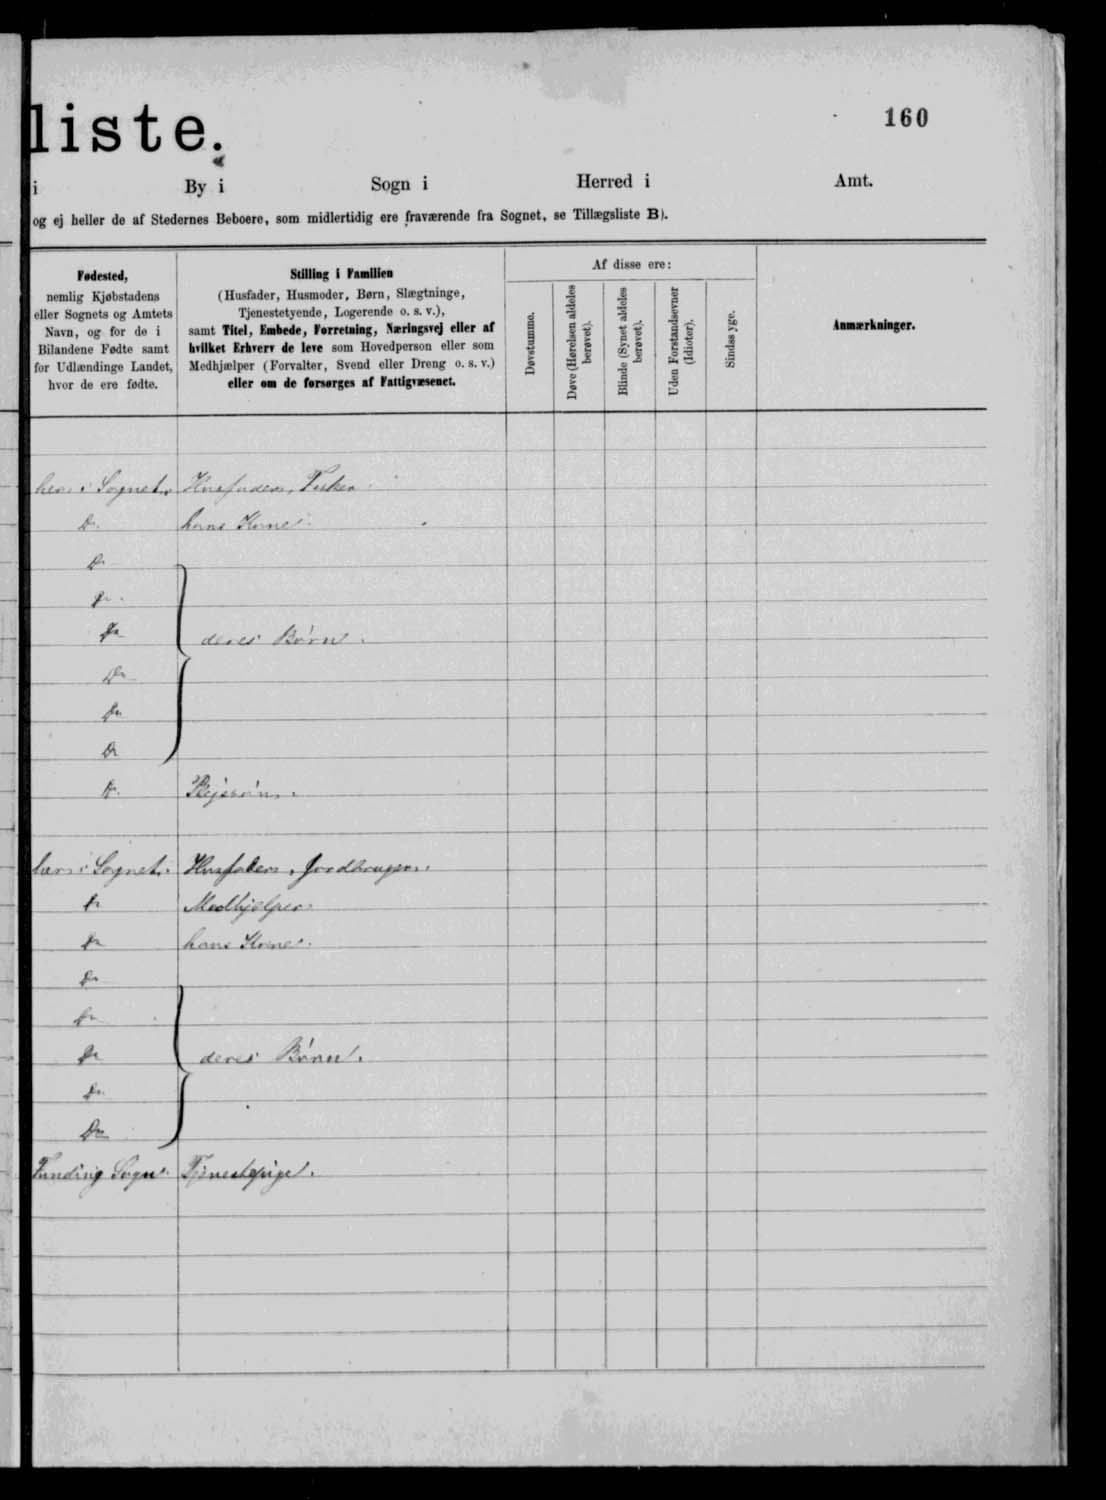 liste.
160
i By i Sogn i Herred i Amt.
og ej heller de af Stedernes Beboere, som midlertidig ere fraværende fra Sognet, se Tillægsliste B).
Fødested,
nemlig Kjøbstadens
eller Sognets og Amtets
Navn, og for de i
Bilandene Fødte samt
for Udlændinge Landet,
hvor de ere fødte.
Stilling i Familien
(Husfader, Husmoder, Børn, Slægtninge,
Tjenestetyende, Logerende o. s. v.),
samt Titel, Embede, Forretning, Næringsvej eller af
hvilket Erhverv de leve som Hovedperson eller som
Medhjælper (Forvalter, Svend eller Dreng o. s. v.)
eller om de forsørges af Fattigvæsenet.
Af disse ere:
Døvstumme.
Døve (Hørelsen aldeles
berøvet).
Blinde (Synet aldeles
berøvet).
Uden Forstandsevner
(Idioter).
Sindssyge.
Anmærkninger.
her i Sognet. Husfader, Fisker.
Do. hans Kone.
Do
Do.
Do deres Børn.
Do
Do.
Do
Do. Plejesøn.
her i Sognet. Husfader, Jordbruger.
Do Medhjelper
Do hans Kone.
Do
Do
Do deres Børn.
Do.
Do
Funding Sogn. Tjenestepige.